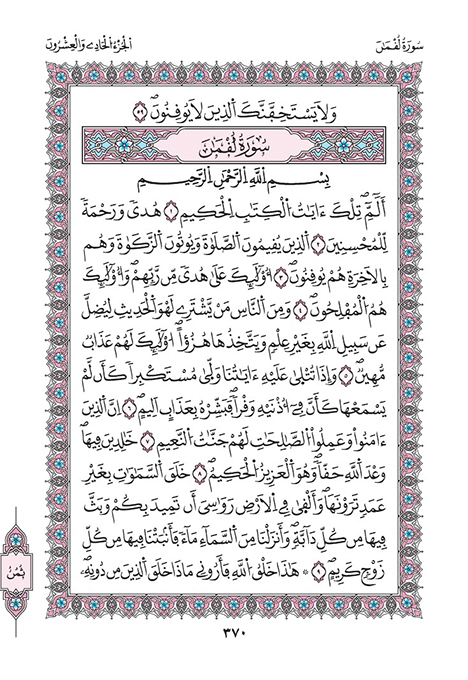 سُورَةُ لُقْمَٰنَ
اَلْجُزْءُ الْحَادِي وَالْعِشْرُونَ
وَلَا يَسْتَخِفَّنَّكَ اَلذِينَ لَا يُوقِنُونَۖ ٥٩
سُورَةُ لُقْمَٰنَ
بِسْمِ اِللَّهِ اِلرَّحْمَٰنِ اِلرَّحِيمِ
أَلَٓمِّٓۖ تِلْكَ ءَايَٰتُ اُلْكِتَٰبِ اِلْحَكِيمِ ١ هُدىٗ وَرَحْمَةٗ
لِّلْمُحْسِنِينَ ٢ اَلذِينَ يُقِيمُونَ اَلصَّلَوٰةَ وَيُوتُونَ اَلزَّكَوٰةَ وَهُم
بِالَاخِرَةِ هُمْ يُوقِنُونَۖ ٣ أُوْلَٰٓئِكَ عَلَىٰ هُدىٗ مِّن رَّبِّهِمْۖ وَأُوْلَٰٓئِكَ
هُمُ اُلْمُفْلِحُونَۖ ٤ وَمِنَ اَلنَّاسِ مَنْ يَّشْتَرِے لَهْوَ اَلْحَدِيثِ لِيُضِلَّ
عَن سَبِيلِ اِللَّهِ بِغَيْرِ عِلْمٖ وَيَتَّخِذُهَا هُزُؤاًۖ اُوْلَٰٓئِكَ لَهُمْ عَذَابٞ
مُّهِينٞۖ ٥ وَإِذَا تُتْلَىٰ عَلَيْهِ ءَايَٰتُنَا وَلَّىٰ مُسْتَكْبِراٗ كَأَن لَّمْ
يَسْمَعْهَا كَأَنَّ فِےٓ أُذْنَيْهِ وَقْراٗۖ فَبَشِّرْهُ بِعَذَابٍ اَلِيمٍۖ ٦ اِنَّ اَلذِينَ
ءَامَنُواْ وَعَمِلُواْ اُلصَّٰلِحَٰتِ لَهُمْ جَنَّٰتُ اُلنَّعِيمِ ٧ خَٰلِدِينَ فِيهَاۖ
وَعْدَ اَللَّهِ حَقّاٗۖ وَهُوَ اَلْعَزِيزُ اُلْحَكِيمُۖ ٨ خَلَقَ اَلسَّمَٰوَٰتِ بِغَيْرِ
عَمَدٖ تَرَوْنَهَاۖ وَأَلْقَىٰ فِے اِلَارْضِ رَوَٰسِيَ أَن تَمِيدَ بِكُمْ وَبَثَّ
فِيهَا مِن كُلِّ دَآبَّةٖۖ وَأَنزَلْنَا مِنَ اَلسَّمَآءِ مَآءٗ فَأَنۢبَتْنَا فِيهَا مِن كُلِّ
زَوْجٖ كَرِيمٍۖ ٩ ۞ هَٰذَا خَلْقُ اُللَّهِ فَأَرُونِے مَاذَا خَلَقَ اَلذِينَ مِن دُونِهِۦۖ
ثُمُنُ
٣٧٠